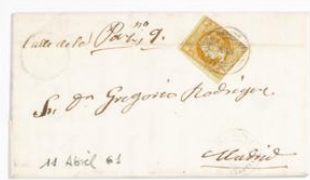 Calle de la
nº 9.
Sr. Dn. Gregorio Rodriguez
Madrid
11 Abril 61